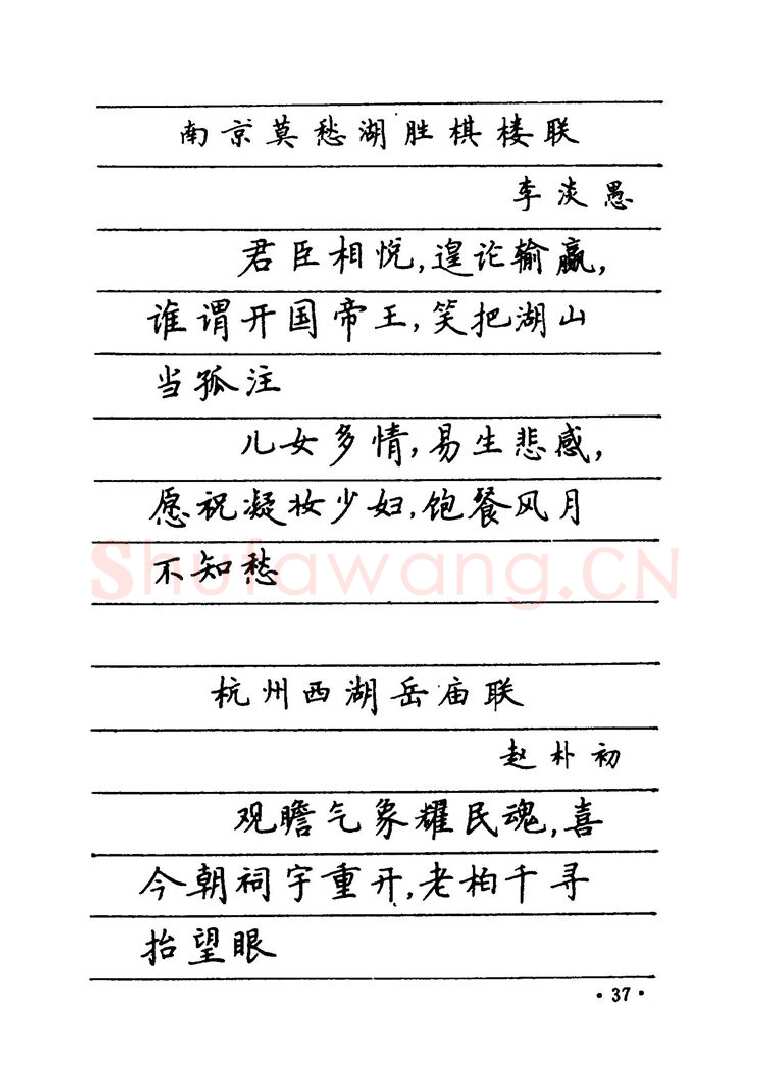 南京莫愁湖胜棋楼联
李淡愚
君臣相悦,遑论输赢,
谁谓开国帝王,笑把湖山
当孤注
儿女多情,易生悲感,
愿祝凝妆少妇,饱餐风月
不知愁
Shufawang.CN
杭州西湖岳庙联
赵朴初
观瞻气象耀民魂,喜
今朝祠宇重开,老柏千寻
抬望眼
·37·